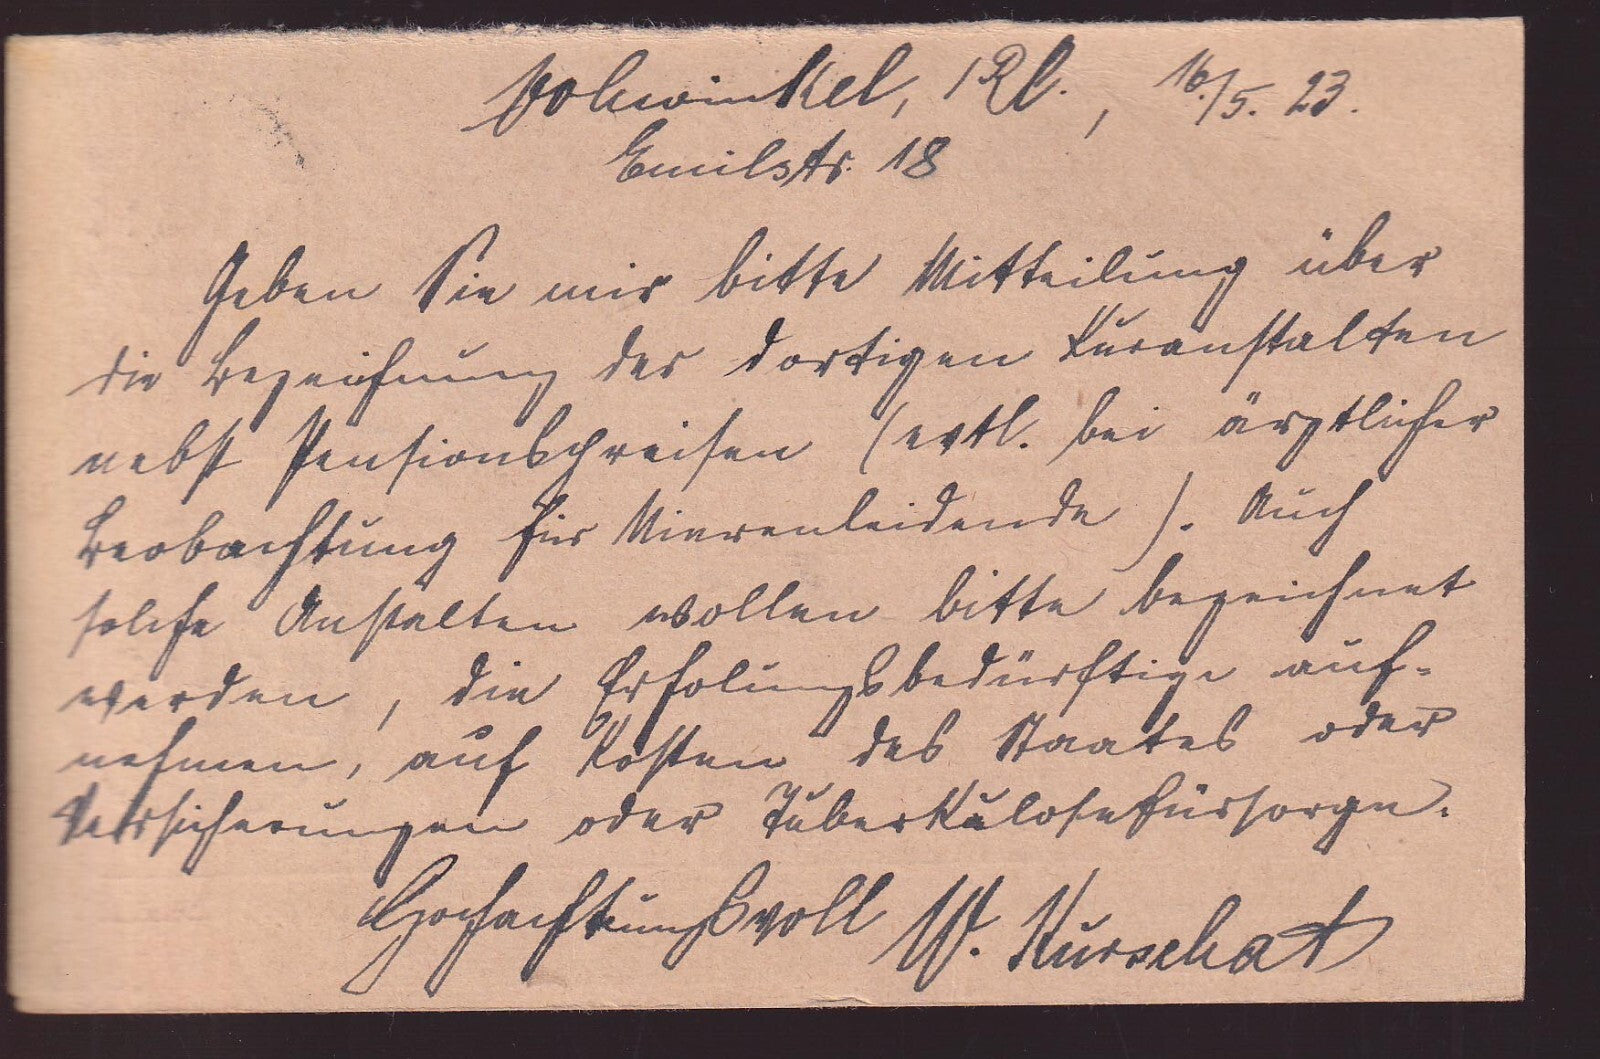 Vohwinkel, Rhl., 16./5. 23.
Emilstr. 18
Geben Sie mir bitte Mitteilung über
die Bezeichnung der dortigen Kuranstalten
nebst Pensionspreisen (evtl. bei ärztlicher
Beobachtung für Nierenleidende). Auch
solche Anstalten wollen bitte bezeichnet
werden, die Erholungsbedürftige auf-
nehmen, auf Kosten des Staates oder
Versicherungen oder Tuberkulosefürsorge.
Hochachtungsvoll W. Kurschat